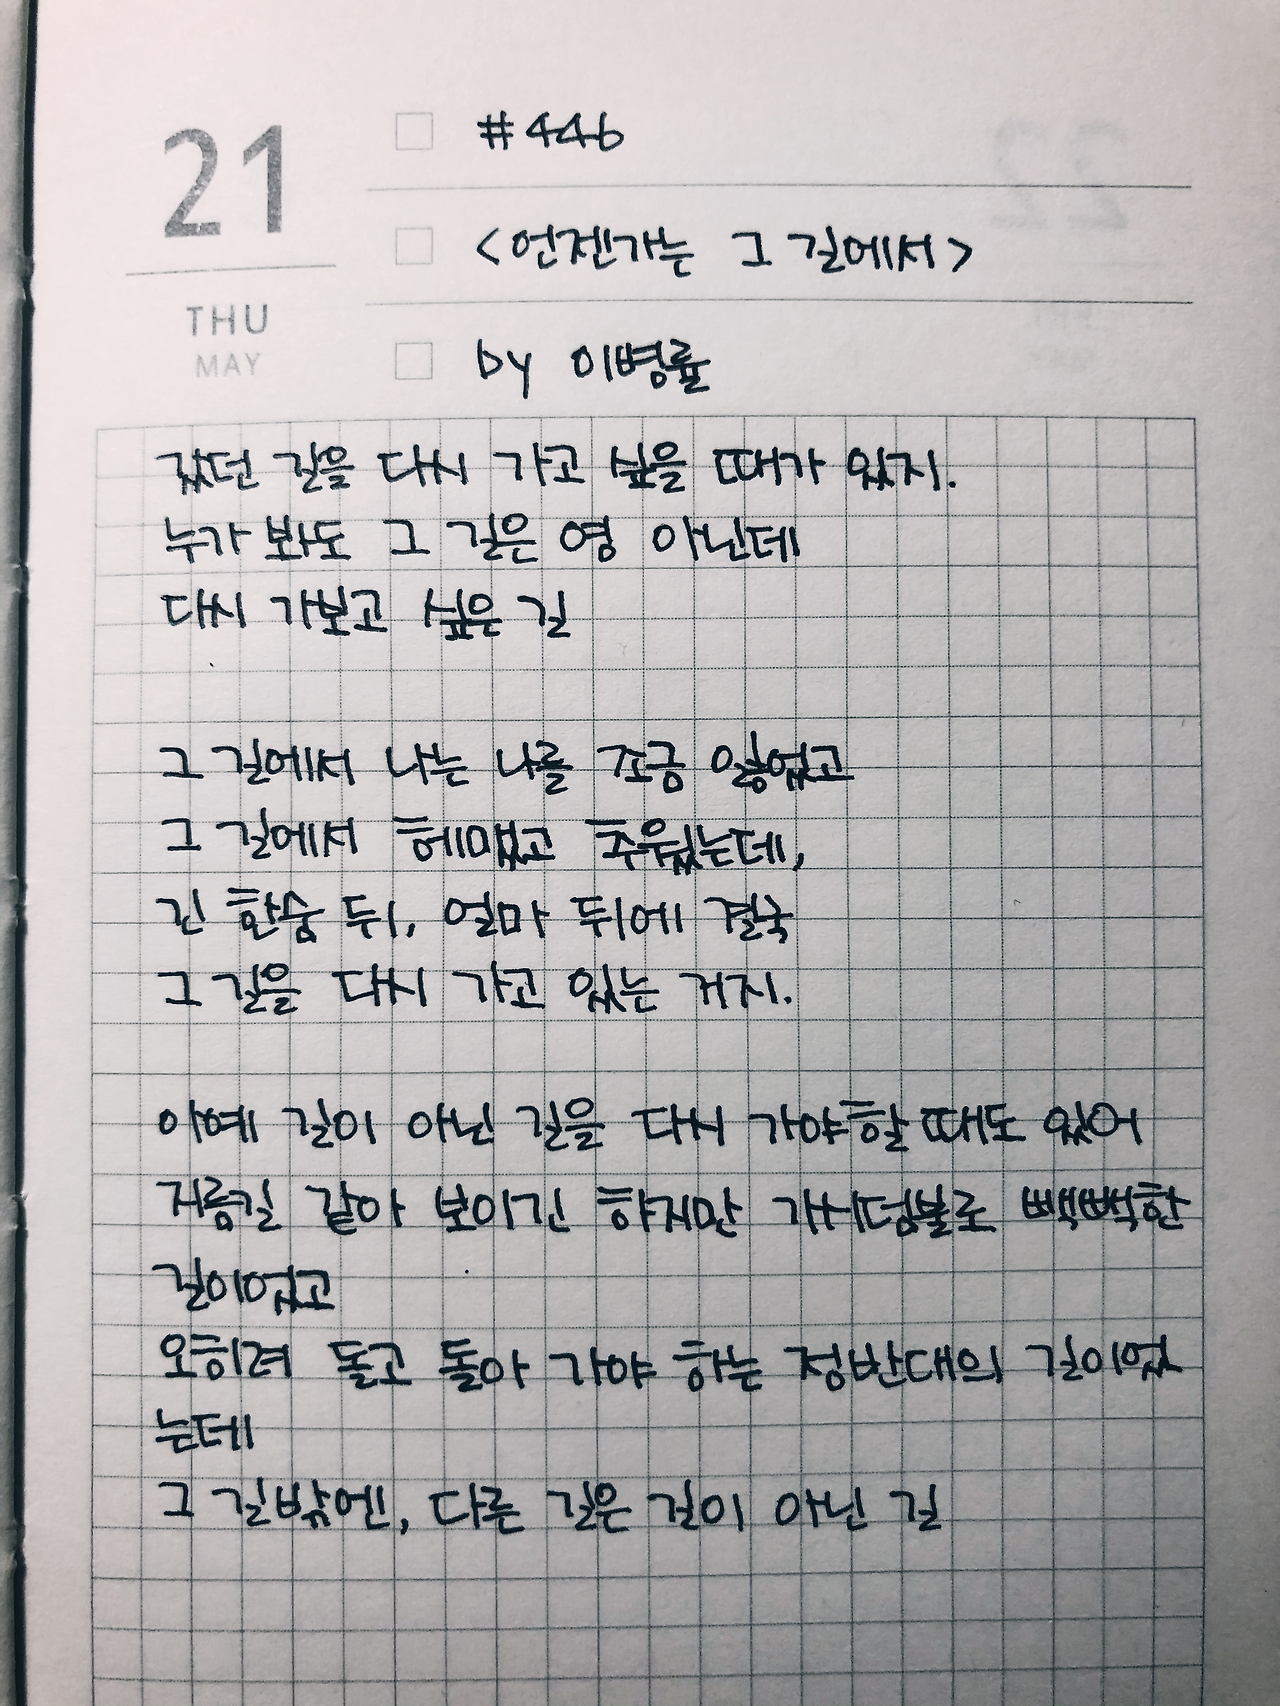 21
THU
MAY
#446
<언젠가는 그 길에서>
by 이병률
갔던 길을 다시 가고 싶을 때가 있지.
누가 봐도 그 길은 영 아닌데
다시 가보고 싶은 길
그 길에서 나는 나를 조금 잃었고
그 길에서 헤맸고 추웠는데,
긴 한숨 뒤, 얼마 뒤에 결국
그 길을 다시 가고 있는 거지.
아예 길이 아닌 길을 다시 가야할 때도 있어
지름길 같아 보이긴 하지만 가시덤불로 빽빽한
길이었고
오히려 돌고 돌아 가야 하는 정반대의 길이었
는데
그 길밖엔, 다른 길은 길이 아닌 길